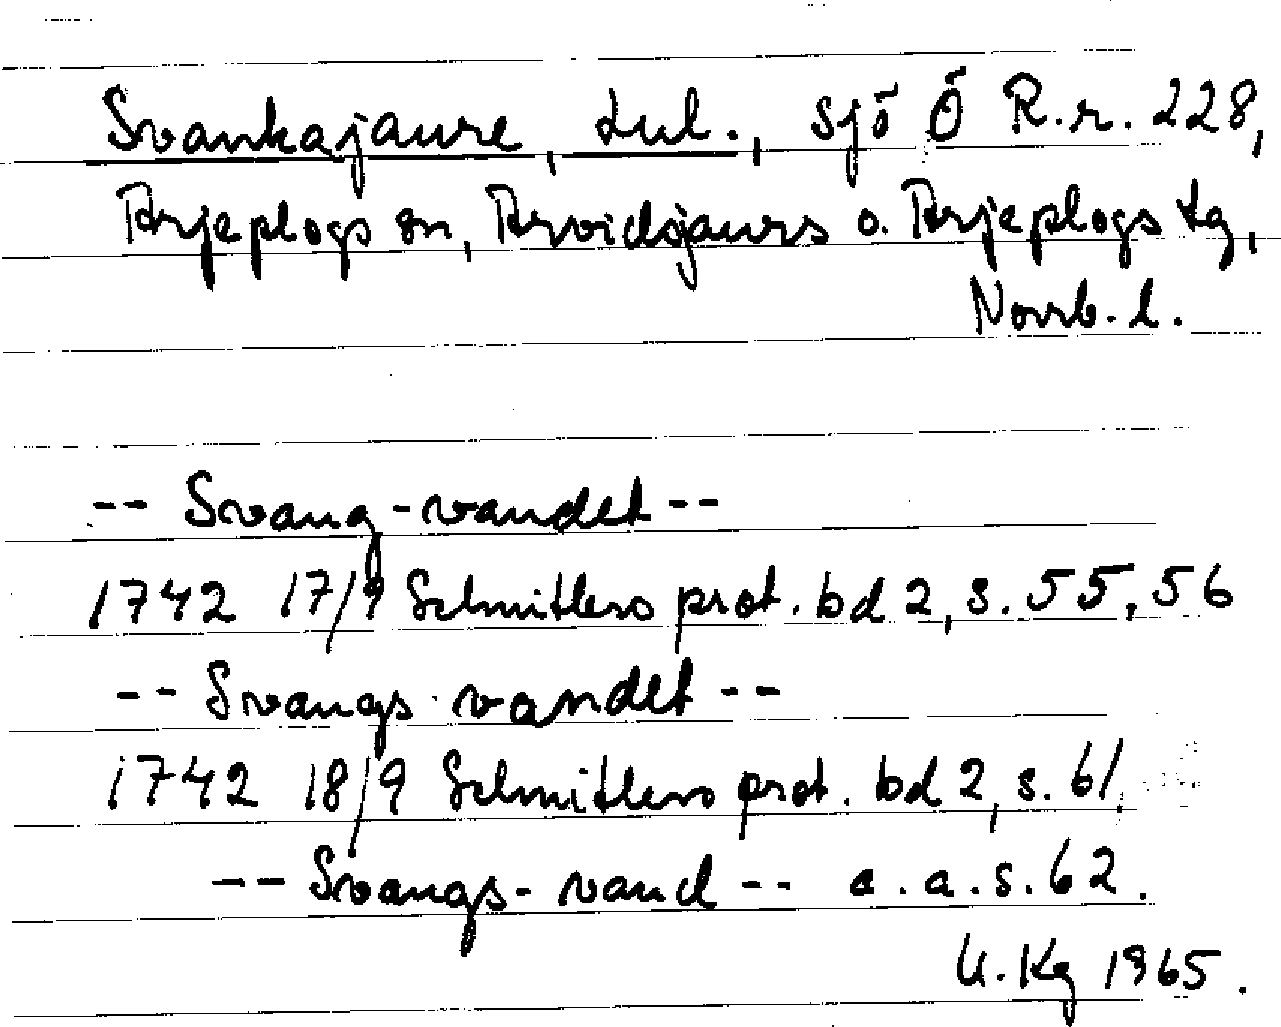 Svankajaure, tul., sjö Ö R.r. 228,
Arjeplogs sn, Arvidsjaurs o. Arjeplogs tg,
Norrb. l.
-- Svang-vandet --
1742 17/9 Schnitlers prot. bd 2, s. 55, 56
-- Svangs-vandet --
1742 18/9 Schnitlers prot. bd 2, s. 61.
-- Svangs-vand -- a.a.s. 62.
U. Kg 1965.